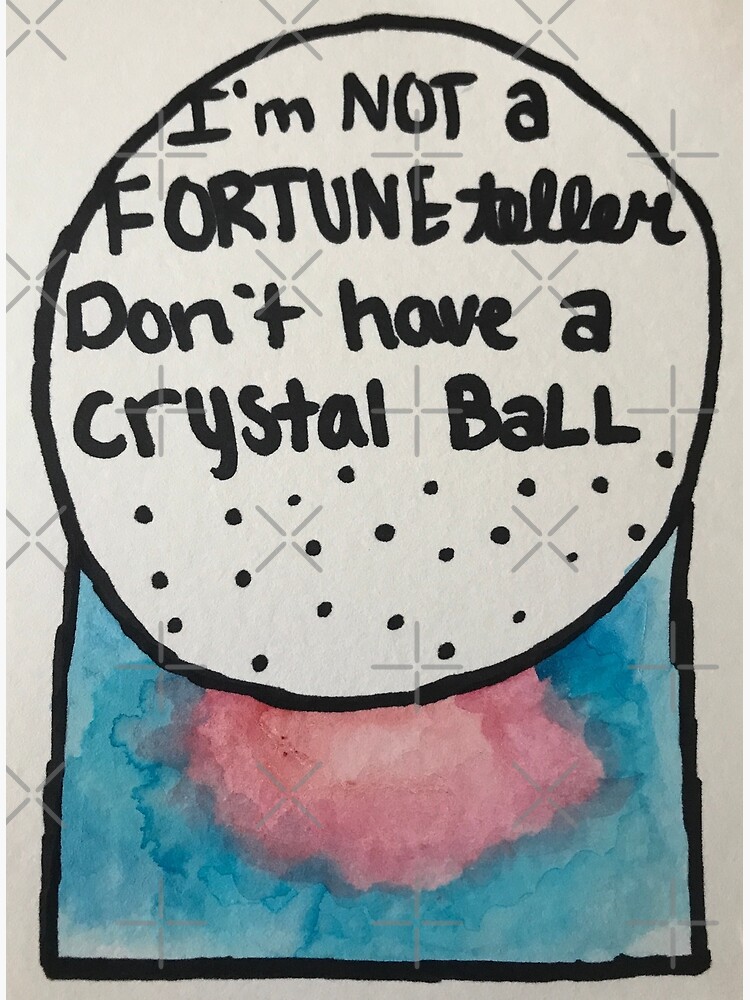 I'm NOT a
FORTUNE teller
Don't have a
crystal BaLL